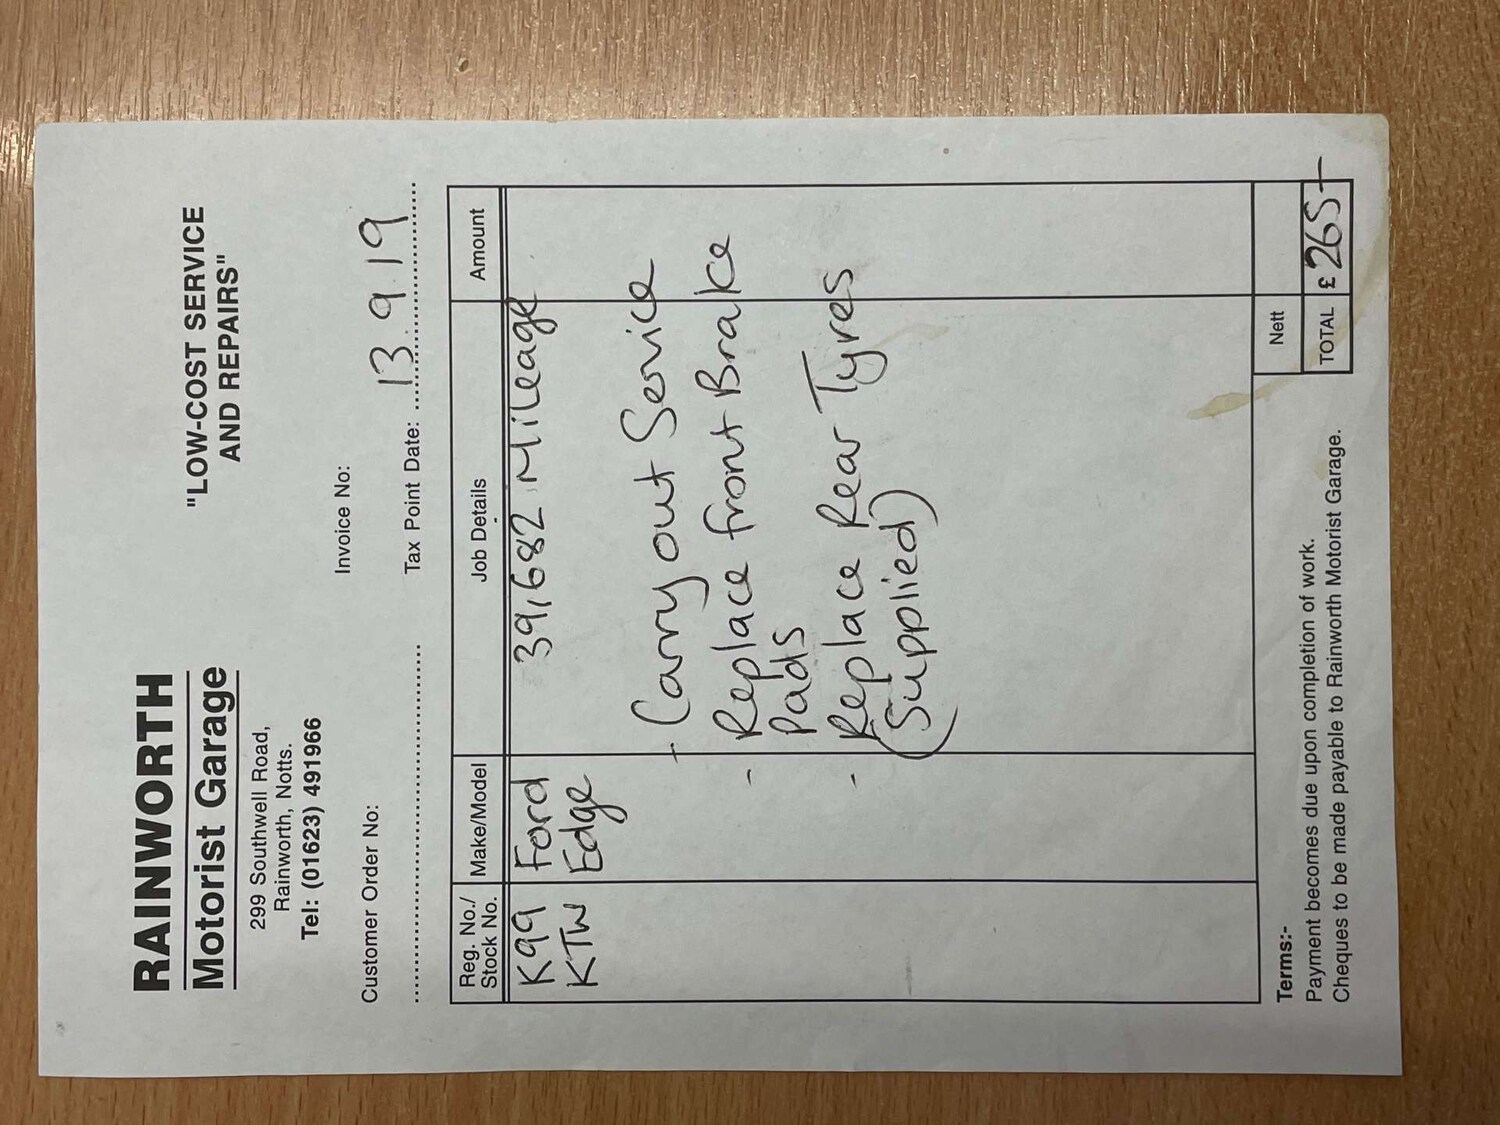 RAINWORTH
Motorist Garage
299 Southwell Road,
Rainworth, Notts.
Tel: (01623) 491966
"LOW-COST SERVICE
AND REPAIRS"
Invoice No:
Customer Order No:
Tax Point Date: 13.9.19
Reg. No./
Stock No.
Make/Model
Job Details
Amount
K99
KTW
Ford
Edge
39,682 Mileage
- Carry out Service
- Replace front Brake
Pads
- Replace Rear Tyres
(Supplied)
Nett
TOTAL £ 265-
Terms:-
Payment becomes due upon completion of work.
Cheques to be made payable to Rainworth Motorist Garage.